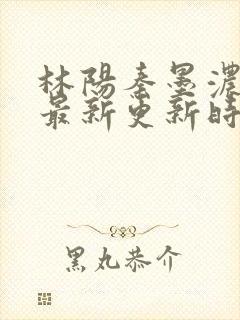 林陽秦墨濃
最新更新時
黑丸恭介